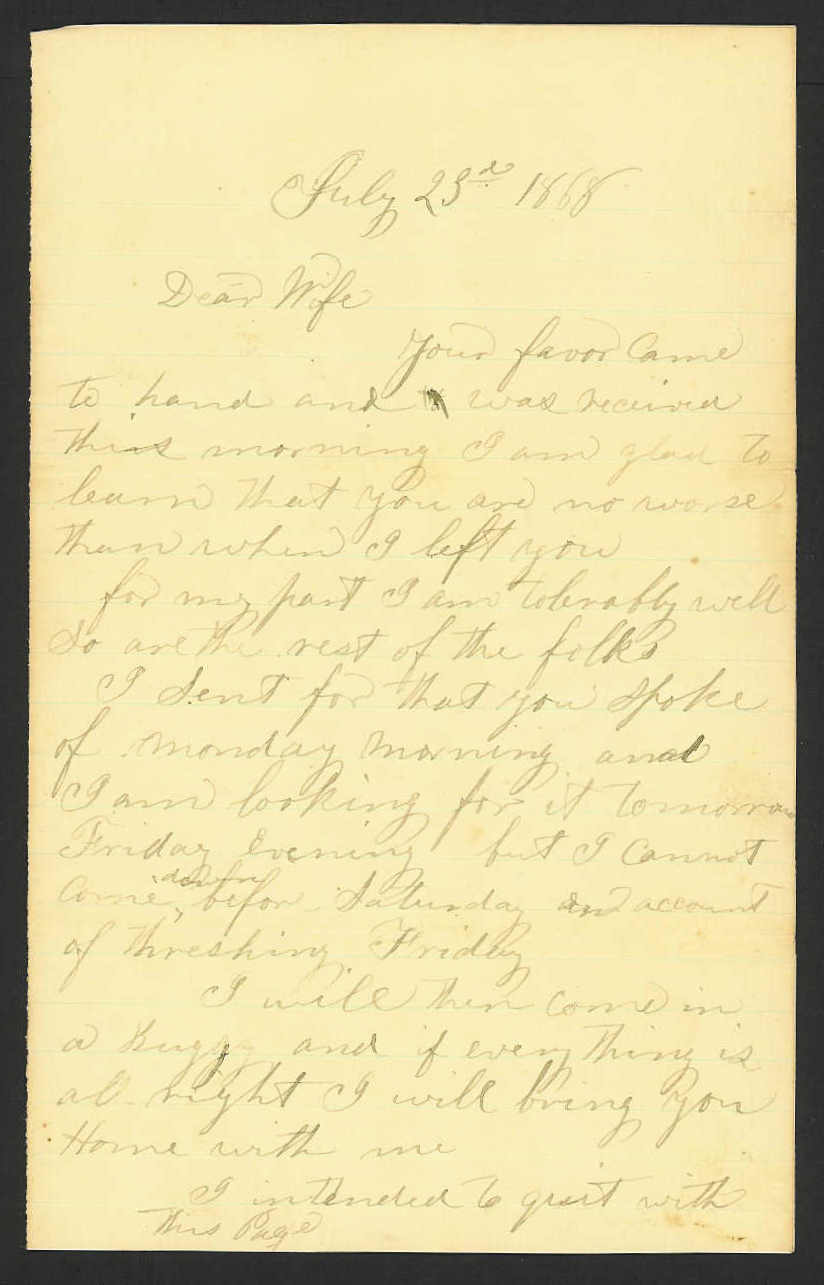 July 23d 1868
Dear Wife
Your favor Came
to hand and was received
this morning I am glad to
learn that you are no worse
than when I left you
for my part I am tolerably well
So are the rest of the folks
I Sent for that you Spoke
of monday morning and
I am looking for it tomorrow
Friday evening but I Cannot
Come down befor Saturday on account
of threshing Friday
I will then Come in
a buggy and if everything is
al right I will bring you
Home with me
I intended to quit with
this Page